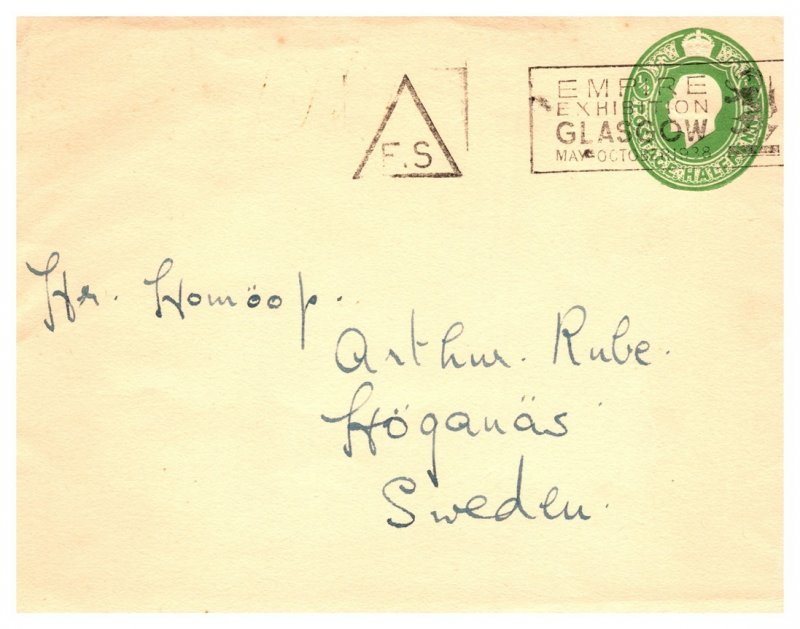 F.S
EMPIRE
EXHIBITION
GLASGOW
MAY-OCTOBER 1938
POSTAGE HALFPENNY
Hr. Homöop.
Arthur. Rube.
Höganäs
Sweden.